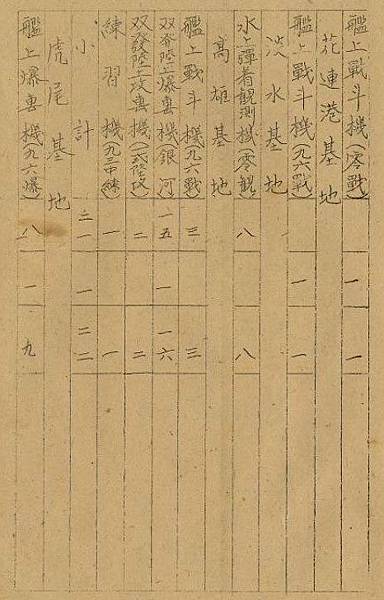 艦上戰斗機(零戰) 一 一
花連港基地
艦上戰斗機(九六戰) 一 一
淡水基地
水上彈着観測機(零観) 八 八
高雄基地
艦上戰斗機(九六戰) 三 三
双発陸上爆撃機(銀河) 一五 一 一六
双發陸上攻撃機(一式陸攻) 二 二
練習機(九三中練) 一 一
小計 二一 一 二二
虎尾基地
艦上爆撃機(九六爆) 八 一 九